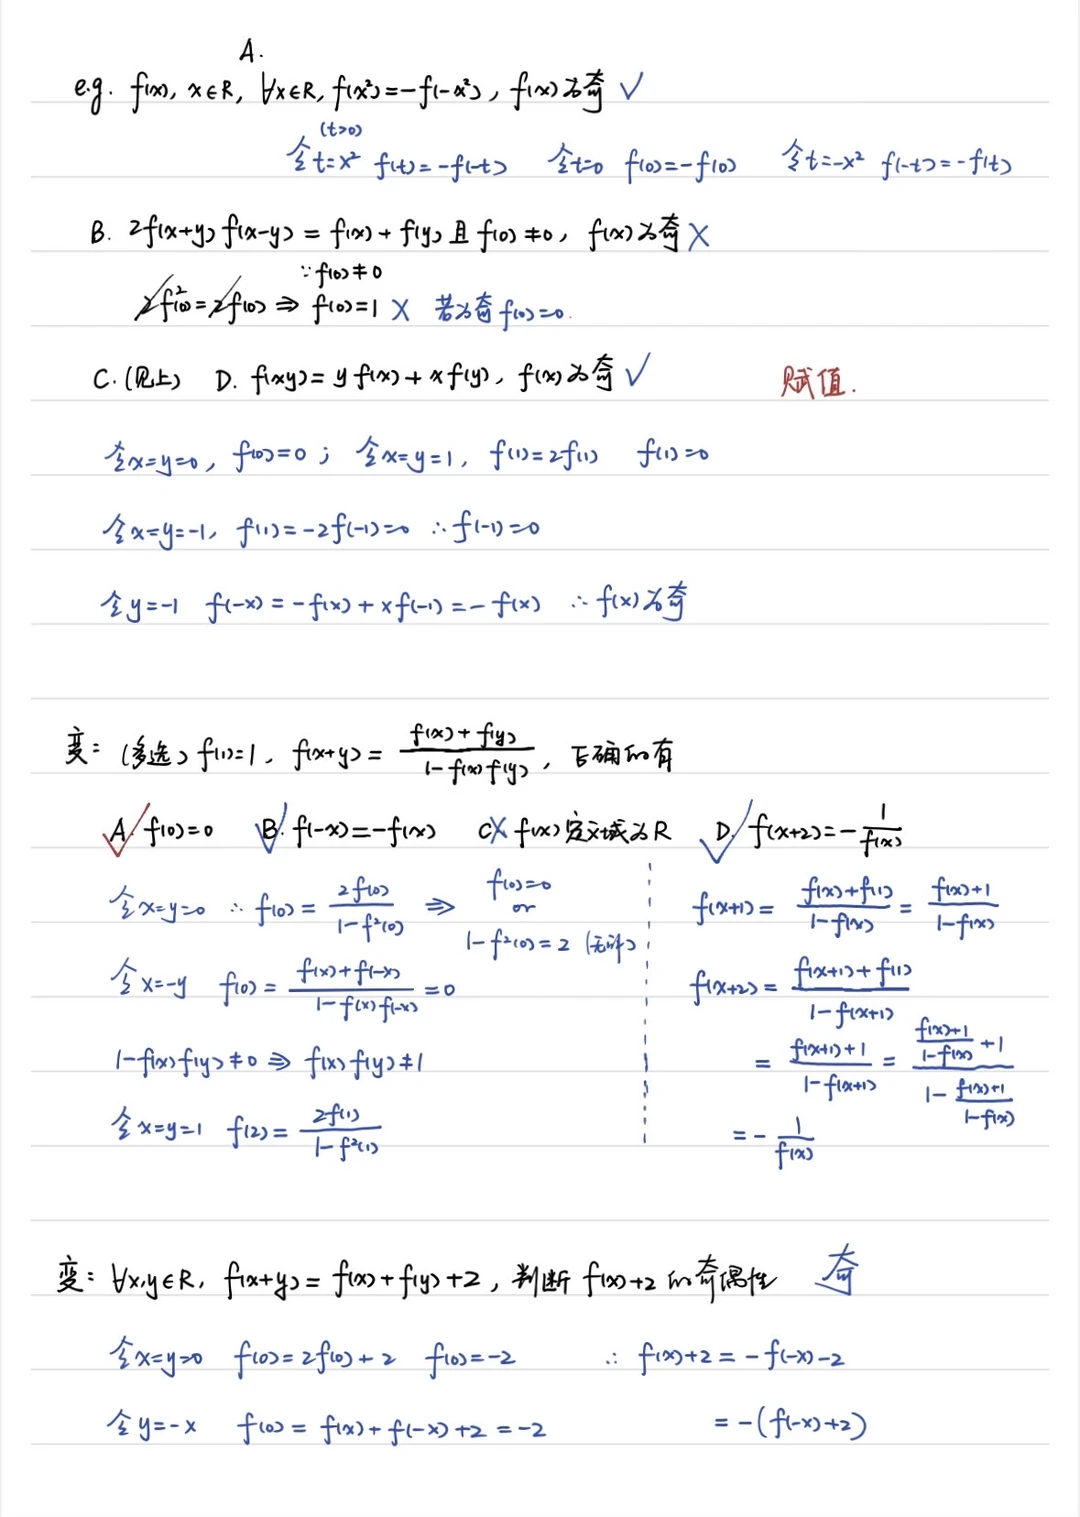 A.
e.g. f(x), x∈R, ∀x∈R, f(x²)=-f(-x²), f(x)为奇 ✓
(t>0)
令t=x² f(t)=-f(-t) 令t=0 f(0)=-f(0) 令t=-x² f(-t)=-f(t)
B. 2f(x+y)f(x-y)=f(x)+f(y)且f(0)≠0, f(x)为奇 ×
∵f(0)≠0
2f²(0)=2f(0) ⇒ f(0)=1 × 若为奇f(0)=0.
C.(见上) D. f(xy)=yf(x)+xf(y), f(x)为奇 ✓ 赋值.
令x=y=0, f(0)=0; 令x=y=1, f(1)=2f(1) f(1)=0
令x=y=-1, f(1)=-2f(-1)=0 ∴f(-1)=0
令y=-1 f(-x)=-f(x)+xf(-1)=-f(x) ∴f(x)为奇
变: (多选) f(1)=1, f(x+y)=(f(x)+f(y))/(1-f(x)f(y)), 正确的有
✓A. f(0)=0 ✓B. f(-x)=-f(x) C× f(x)定义域为R ✓D. f(x+2)=-1/f(x)
令x=y=0 ∴f(0)=2f(0)/(1-f²(0)) ⇒ f(0)=0 or 1-f²(0)=2 (无解)
令x=-y f(0)=(f(x)+f(-x))/(1-f(x)f(-x))=0
1-f(x)f(y)≠0 ⇒ f(x)f(y)≠1
令x=y=1 f(2)=2f(1)/(1-f²(1))
f(x+1)=(f(x)+f(1))/(1-f(x))=(f(x)+1)/(1-f(x))
f(x+2)=(f(x+1)+f(1))/(1-f(x+1))
=(f(x+1)+1)/(1-f(x+1))=((f(x)+1)/(1-f(x))+1)/(1-(f(x)+1)/(1-f(x)))
=-1/f(x)
变: ∀x,y∈R, f(x+y)=f(x)+f(y)+2, 判断f(x)+2的奇偶性 奇
令x=y=0 f(0)=2f(0)+2 f(0)=-2 ∴f(x)+2=-f(-x)-2
令y=-x f(0)=f(x)+f(-x)+2=-2 =-(f(-x)+2)